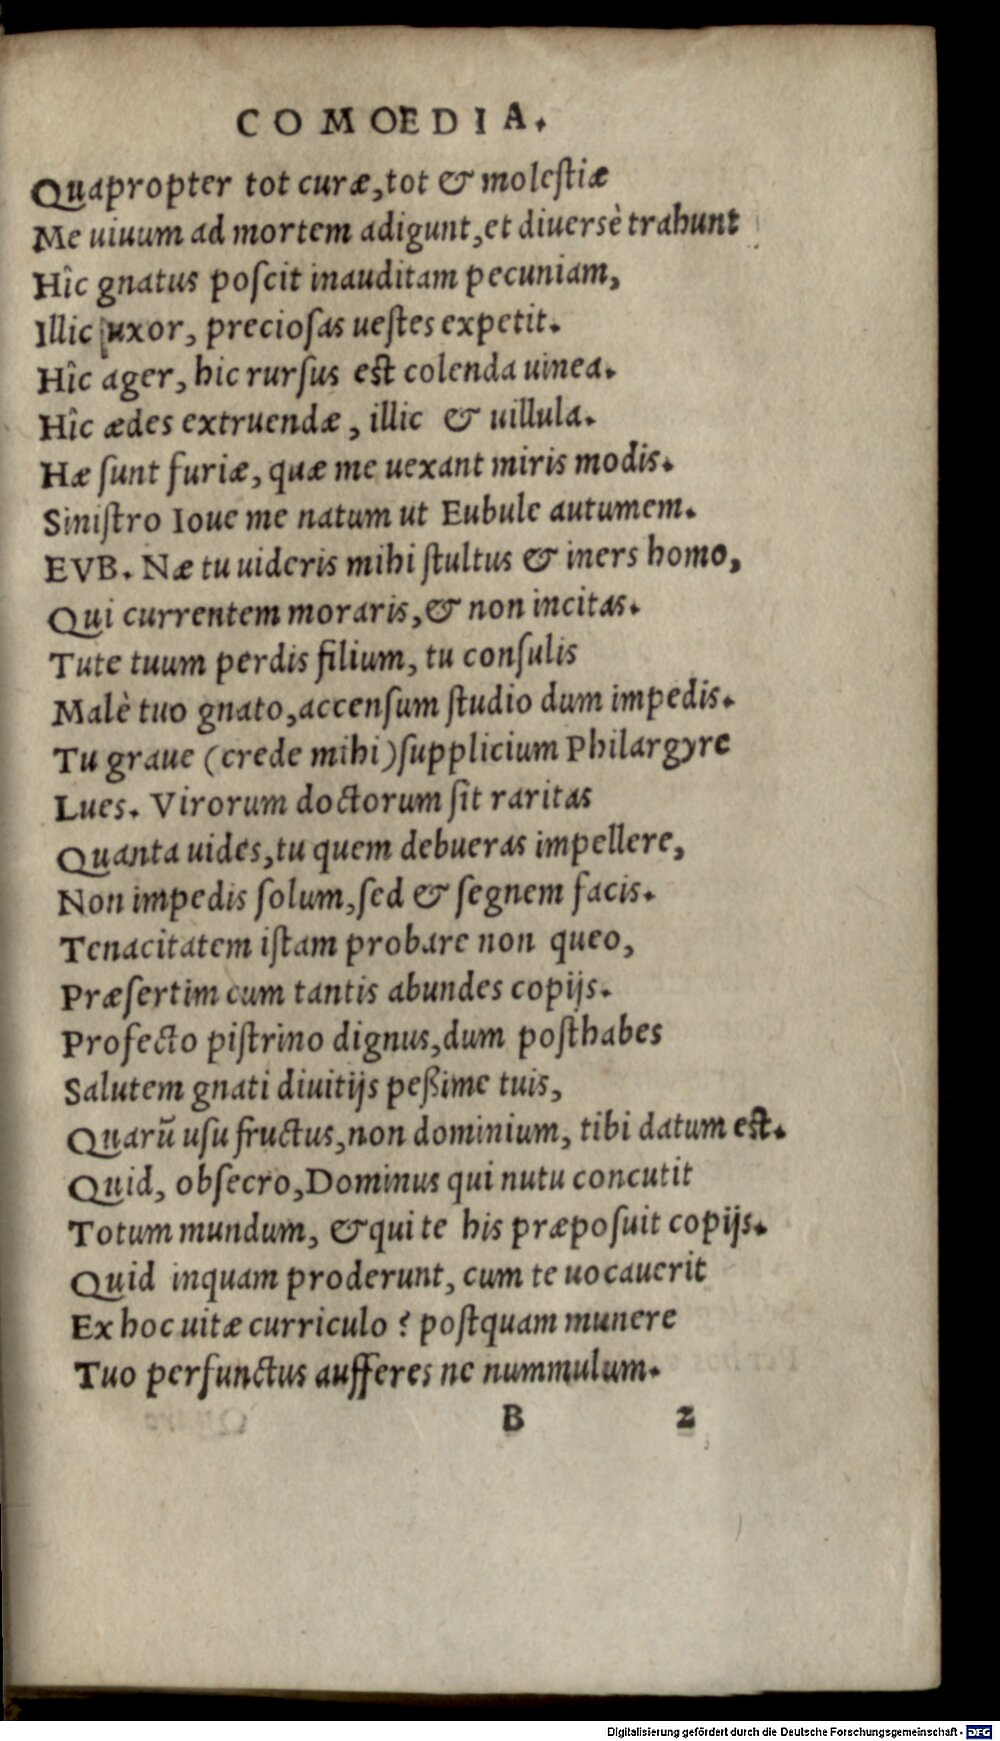 COMOEDIA.
Quapropter tot curæ, tot & moleſtiæ
Me uiuum ad mortem adigunt, et diuersè trahunt
Hîc gnatus poſcit inauditam pecuniam,
Illic uxor, precioſas ueſtes expetit.
Hîc ager, hic rurſus est colenda uinea.
Hîc ædes extruendæ, illic & uillula.
Hæ ſunt furiæ, quæ me uexant miris modis.
Siniſtro Ioue me natum ut Eubule autumem.
EVB. Næ tu uideris mihi ſtultus & iners homo,
Qui currentem moraris, & non incitas.
Tute tuum perdis filium, tu conſulis
Malè tuo gnato, accenſum ſtudio dum impedis.
Tu graue (crede mihi) ſupplicium Philargyre
Lues. Virorum doctorum ſit raritas
Quanta uides, tu quem debueras impellere,
Non impedis ſolum, ſed & ſegnem facis.
Tenacitatem iſtam probare non queo,
Præſertim cum tantis abundes copijs.
Profecto piſtrino dignus, dum poſthabes
Salutem gnati diuitijs peßime tuis,
Quarũ uſu fructus, non dominium, tibi datum est.
Quid, obſecro, Dominus qui nutu concutit
Totum mundum, & qui te his præpoſuit copijs.
Quid inquam proderunt, cum te uocauerit
Ex hoc uitæ curriculo? poſtquam munere
Tuo perfunctus aufferes ne nummulum.
B 2
Digitalisierung gefördert durch die Deutsche Forschungsgemeinschaft - DFG